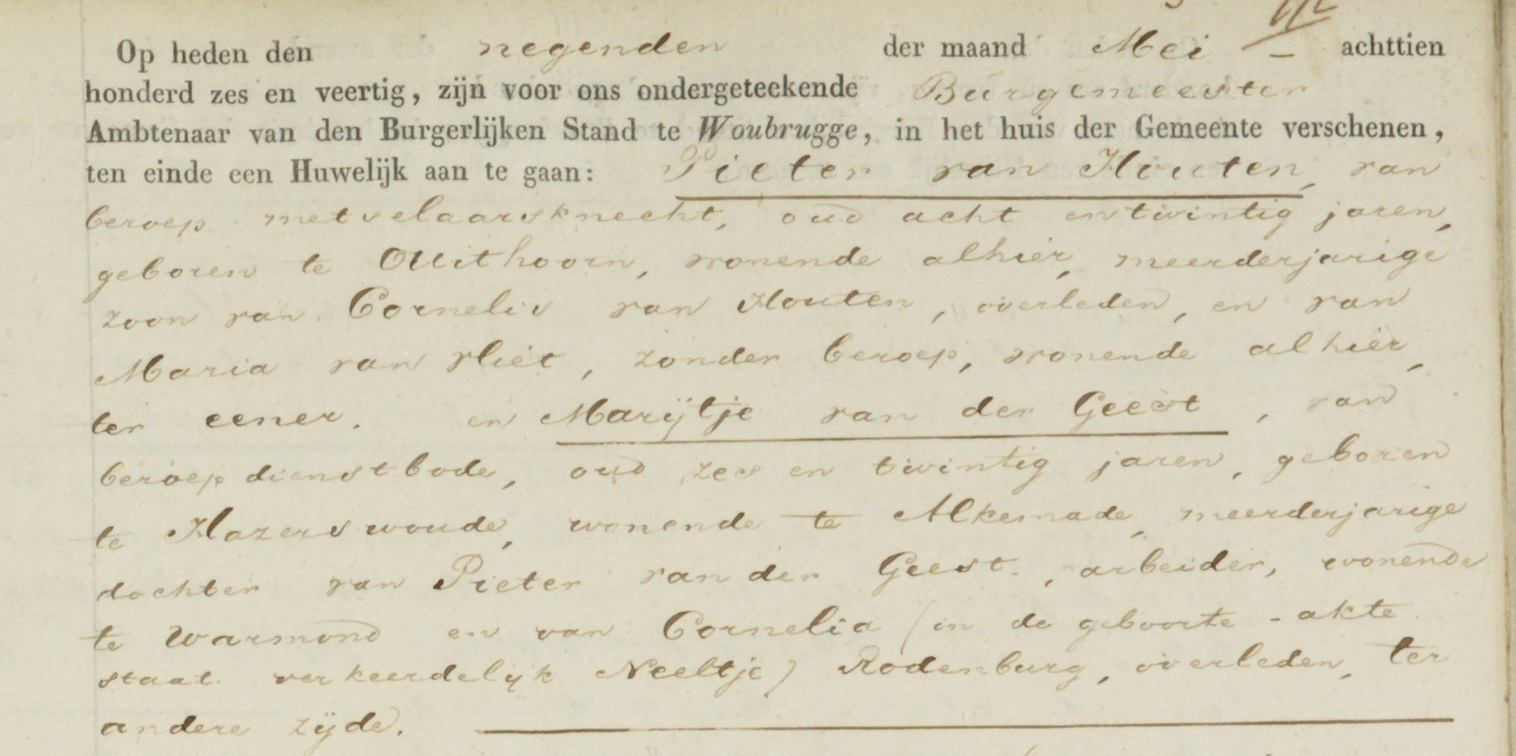 Op heden den negenden der maand Mei – achttien
honderd zes en veertig, zijn voor ons ondergeteekende Burgemeester
Ambtenaar van den Burgerlijken Stand te Woubrugge, in het huis der Gemeente verschenen,
ten einde een Huwelijk aan te gaan: Pieter van Houten, van
beroep metselaarsknecht, oud acht en twintig jaren,
geboren te Outhoorn, wonende alhier, meerderjarige
zoon van Cornelis van Houten, overleden, en van
Maria van Vliet, zonder beroep, wonende alhier,
ter eener. en Marijtje van der Geest, van
beroep dienstbode, oud zes en twintig jaren, geboren
te Hazerswoude, wonende te Alkemade, meerderjarige
dochter van Pieter van der Geest., arbeider, wonende
te Warmond en van Cornelia (in de geboorte-akte
staat verkeerdelijk Neeltje) Rodenburg, overleden, ter
andere zijde.